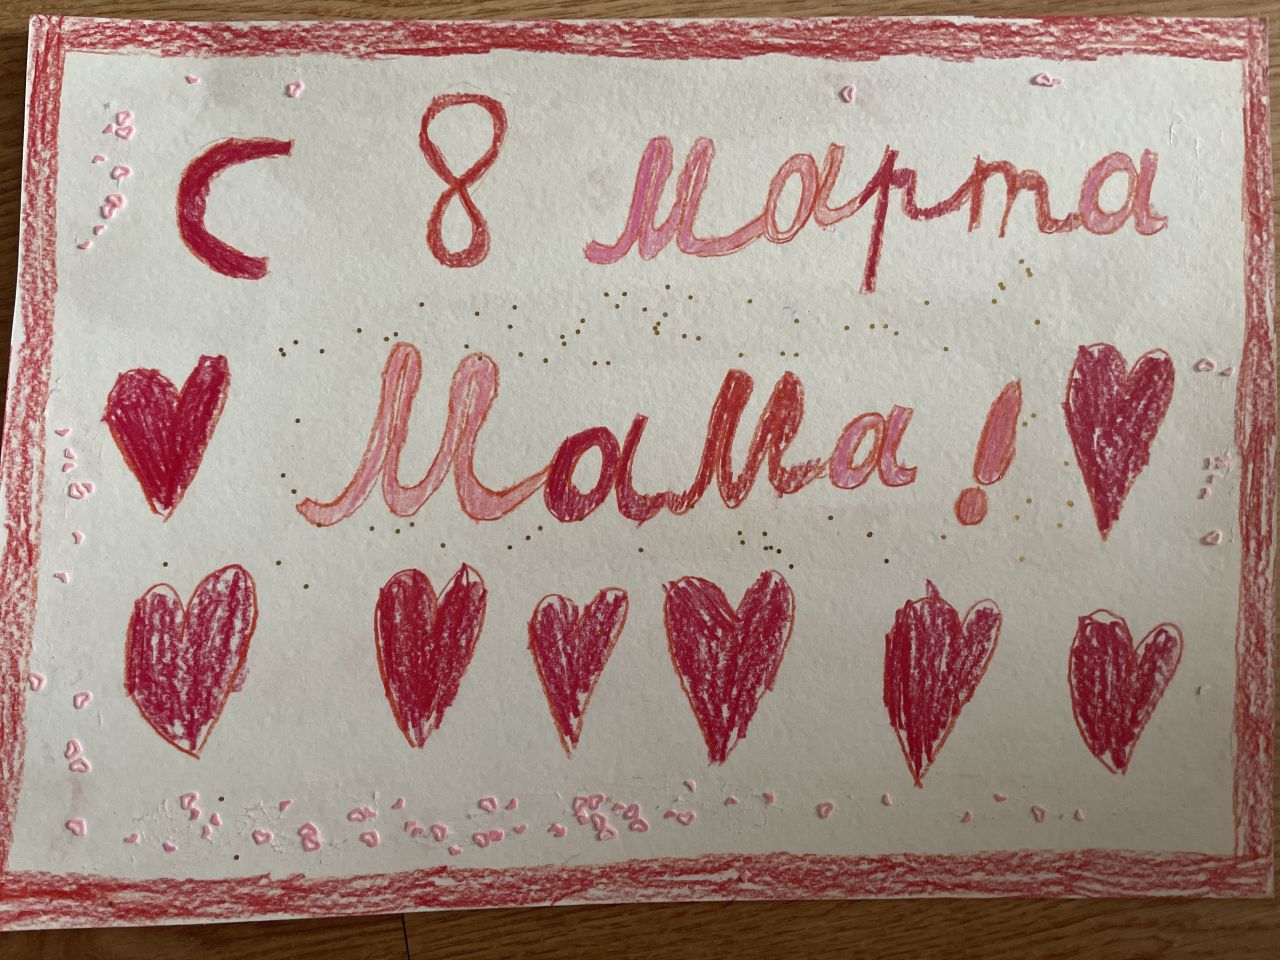 С 8 марта
Мама!